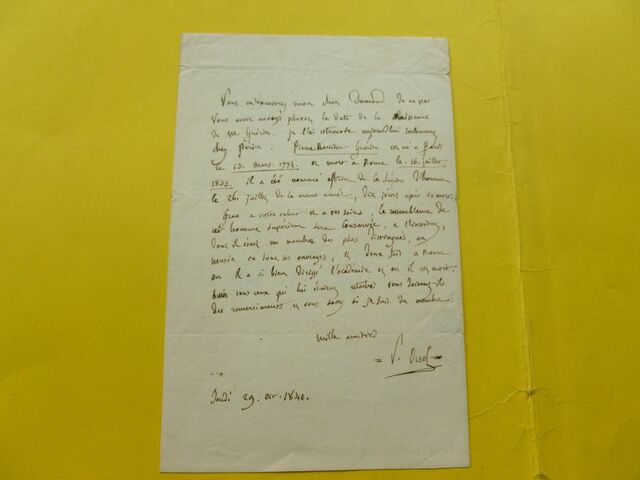 Vous m'excuserez mon cher Dumond de ne pas
vous avoir envoyé plutot la date de la naissance
de Mr. Guérin. je l'ai retrouvée aujourd'hui seulement
chez Périn. Pierre Narcisse Guérin est né à Paris
le 13. mars. 1774. et mort à Rome le 16. juillet
1833. il a été nommé officier de la Légion d'honneur
le 26 juillet de la meme année, dix jours après sa mort.
Grace a votre talent et a vos soins, la ressemblance de
cet homme supérieur sera conservée, a l'institut,
dont il était un membre des plus distingués, au
musée en tous ses ouvrages, et deux fois a Rome
ou il a si bien dirigé l'académie et ou il est mort.
tous ceux qui lui étaient attachés vous doivent-ils
des remerciments et vous savez si je suis du nombre!
mille amitiés
V. Orsel
Jeudi 29. oct. 1840.